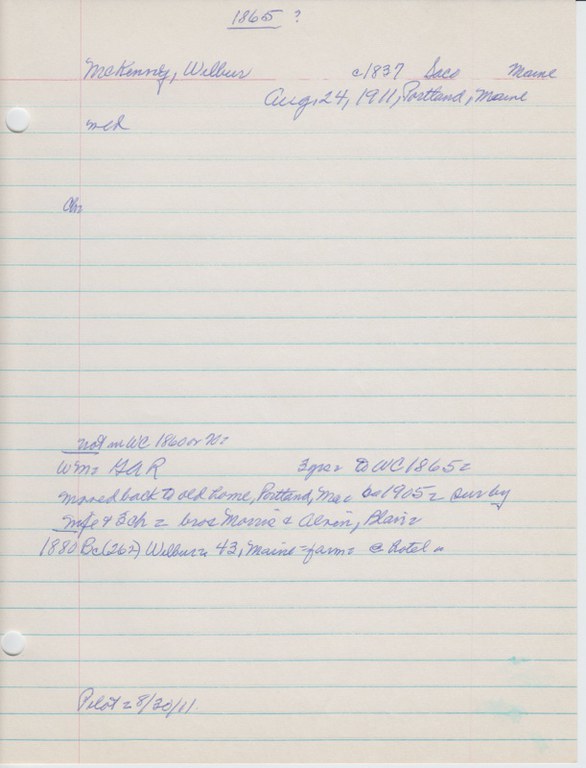 1865 ?
McKenney, Wilbur c1837 Saco Maine
Aug. 24, 1911, Portland, Maine
md
Ch:
not in WC 1860 or 70:
Wm: GAR 3 yrs: to WC 1865:
moved back to old home, Portland, Me: 1905: sur by
wife & 3 ch: bros Morris & Alvin, Blain:
1880 Bc(262) Wilbur: 43, Maine = farm: @ hotel
Pilot: 8/30/11